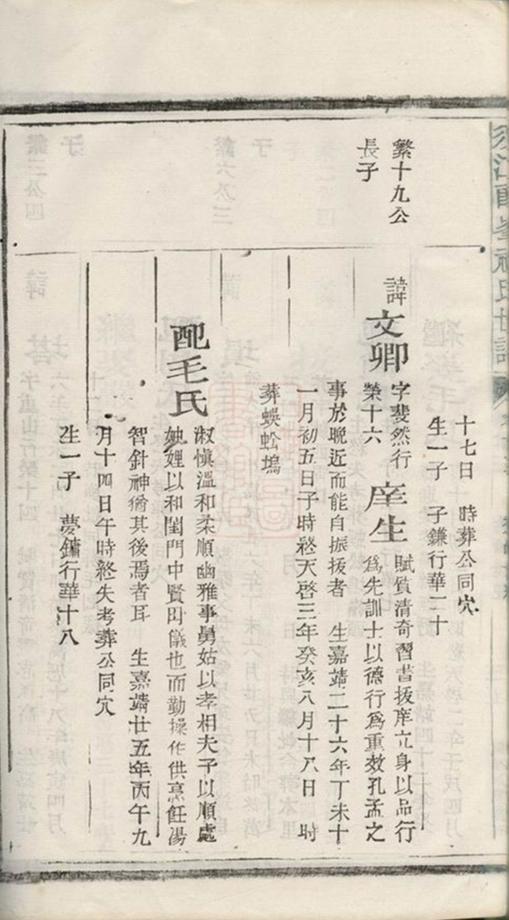 十七日 時葬公同穴
生一子 子鎌行華二十
繁十九公
長子
諱文卿 字斐然行
榮十六
庠生 賦質清奇習昔拔庠立身以品行
為先訓士以德行為重效孔孟之
事於晩近而能自振拔者 生嘉靖二十六年丁未十
一月初五日子時終天啓三年癸亥八月十八日 時
葬蜈蚣塢
配毛氏
淑慎溫和柔順幽雅事舅姑以孝相夫子以順處
妯娌以和閨門中賢毋儀也而勤操作供烹飪湯
智針神猶其後焉者耳 生嘉靖廿五年丙午九
月十四日午時終失考葬公同穴
生一子 夢鏞行華十八